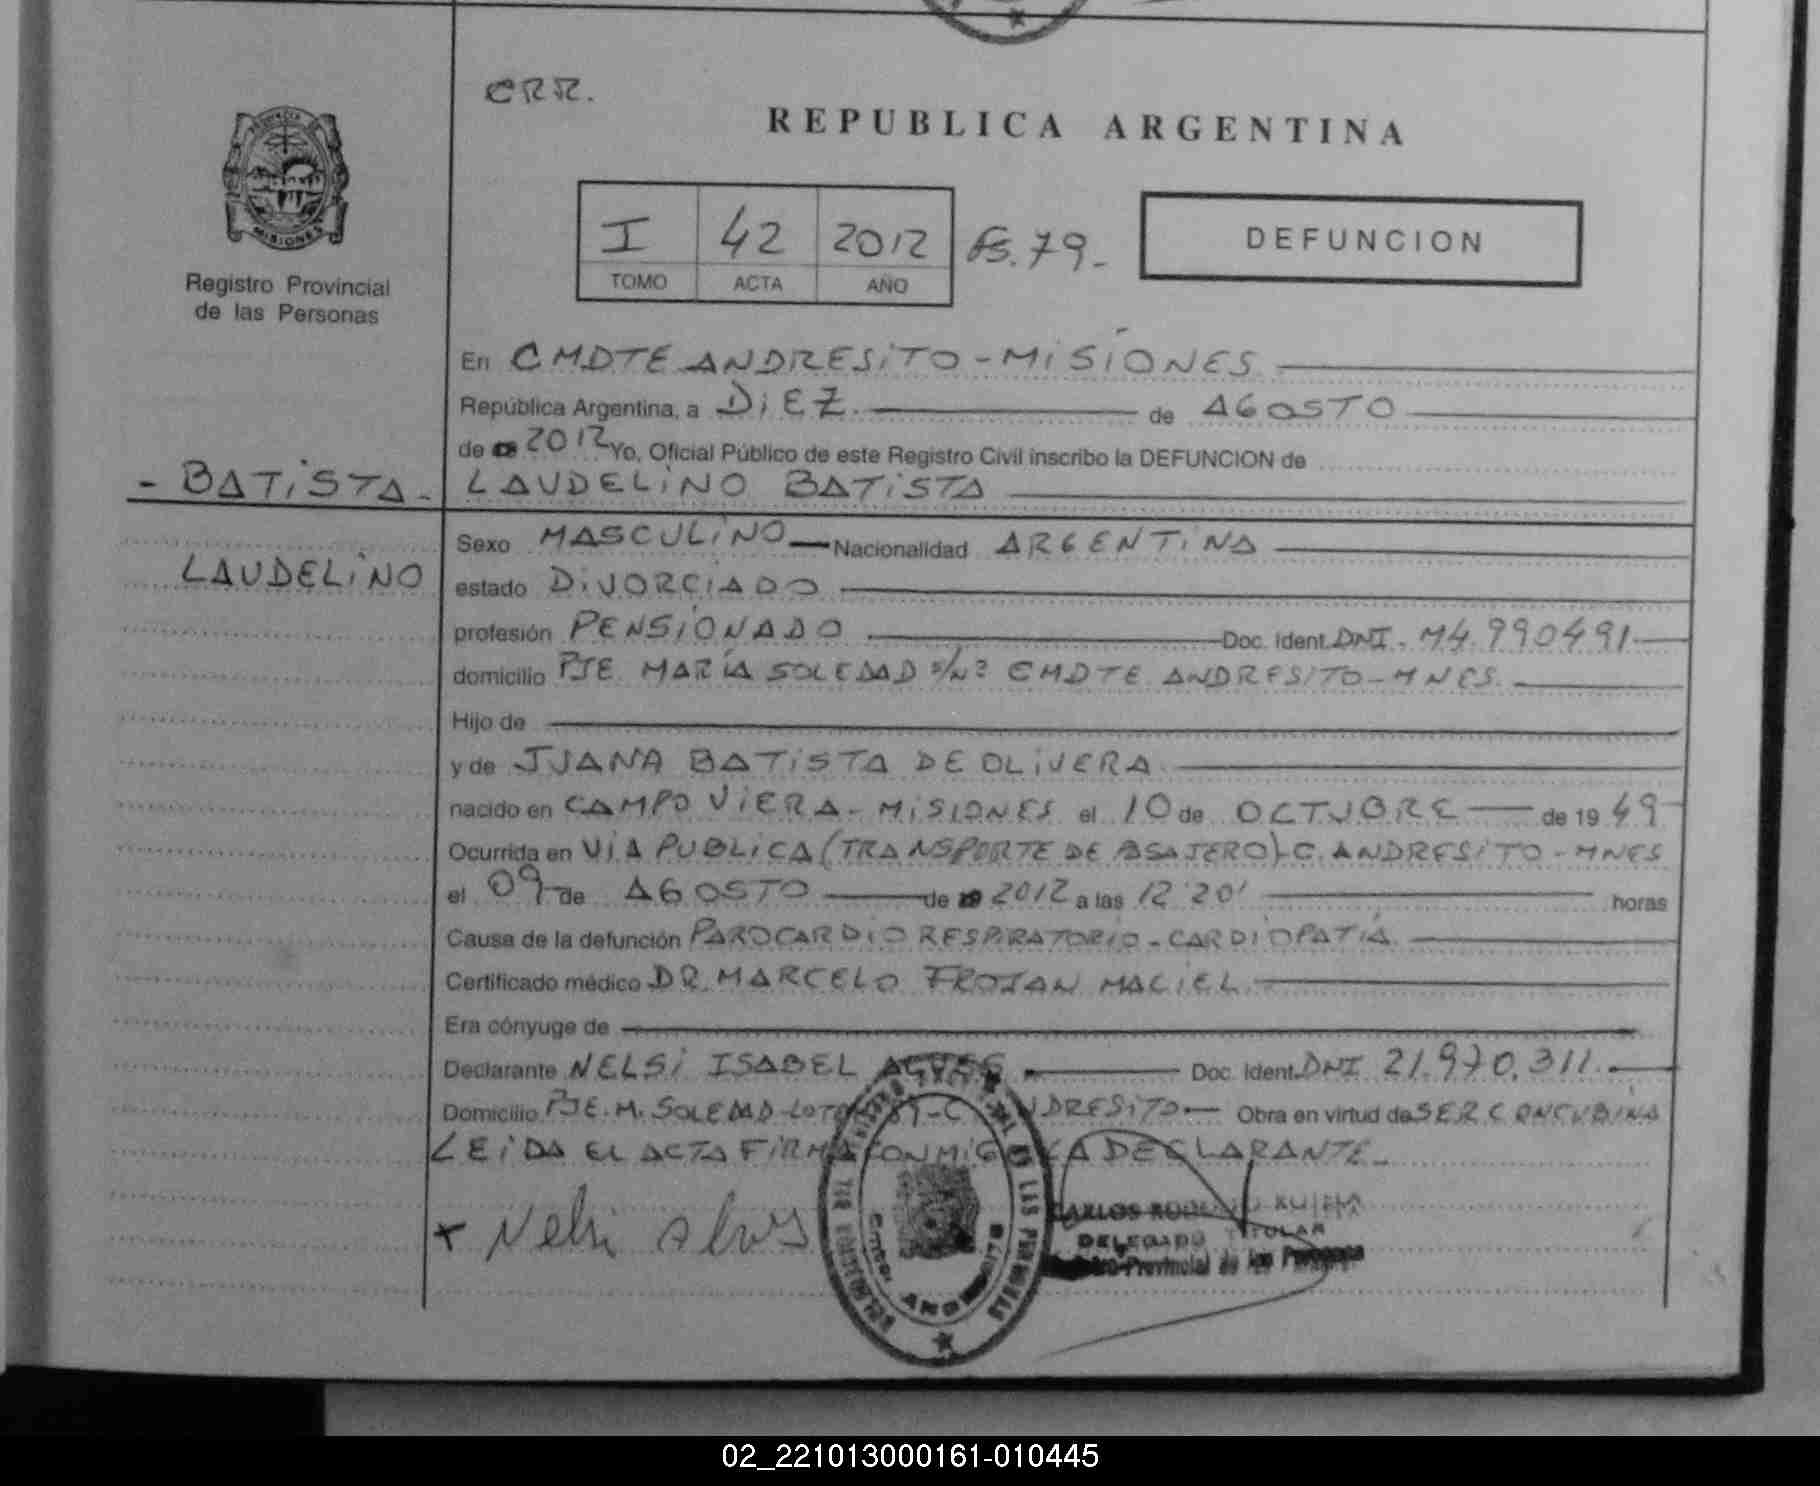 CRR.
REPUBLICA ARGENTINA
PROVINCIA DE
MISIONES
Registro Provincial
de las Personas
I 42 2012 Fs. 79.-
TOMO ACTA AÑO
DEFUNCION
En CMDTE ANDRESITO - MISIONES
República Argentina, a DIEZ de AGOSTO
de 2012 Yo, Oficial Público de este Registro Civil inscribo la DEFUNCION de
- BATISTA - LAUDELINO BATISTA
Sexo MASCULINO Nacionalidad ARGENTINA
LAUDELINO
estado DIVORCIADO
profesión PENSIONADO Doc. Ident. DNI - M4.990491
domicilio PJE MARÍA SOLEDAD S/Nº CMDTE ANDRESITO - MNES.
Hijo de
y de JUANA BATISTA DE OLIVERA
nacido en CAMPO VIERA - MISIONES el 10 de OCTUBRE de 1949
Ocurrida en VIA PUBLICA (TRANSPORTE DE PASAJERO) - C. ANDRESITO - MNES
el 09 de AGOSTO de 2012 a las 12 20' horas
Causa de la defunción PAROCARDIO RESPIRATORIO - CARDIOPATÍA
Certificado médico DR. MARCELO TROJAN MACIEL
Era cónyuge de
Declarante NELSI ISABEL Doc. Ident. DNI 21.970.311.
Domicilio PJE. M. SOLEDAD - - C ANDRESITO Obra en virtud de SER CONCUBINA
LEIDA EL ACTA FIRMA CONMIGO LA DECLARANTE.-
+ Nelsi
CARLOS
DELEGADO TITULAR
Registro Provincial de las Personas
02_221013000161-010445